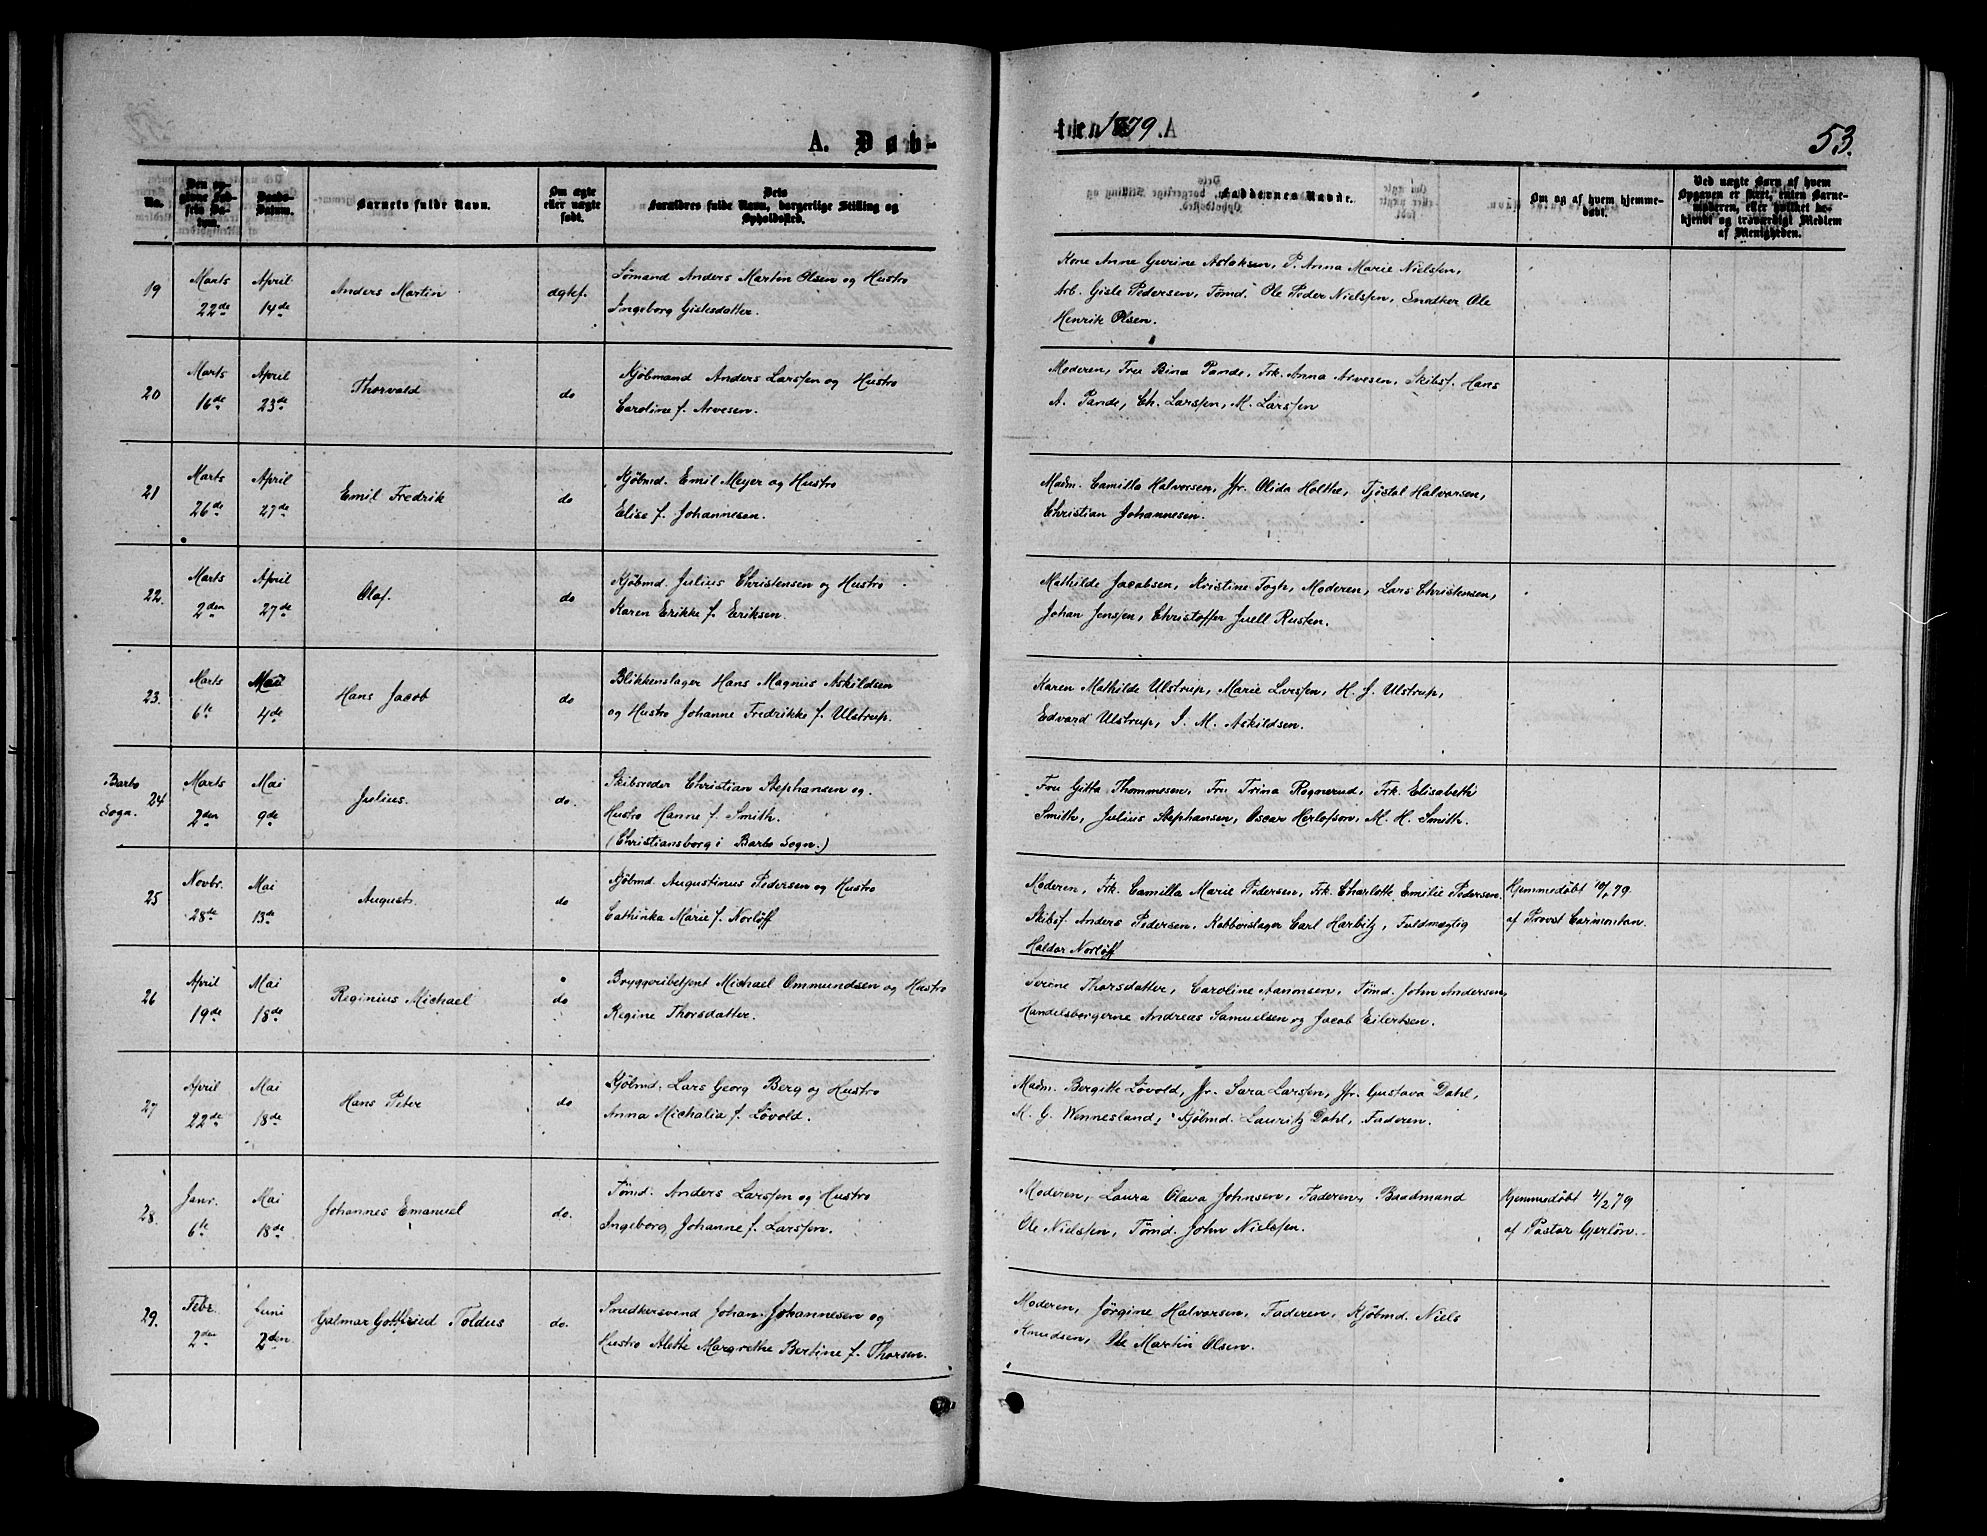 A. Døb-
ten 1879.
53.
No.
Den opgivne Fødsels Datum.
Daabs-Datum.
Barnets fulde Navn.
Om ægte eller uægte født.
Dets Forældres fulde Navn, borgerlige Stilling og Opholdssted.
Faddernes Navne.
Om og af hvem hjemmedøbt.
Ved uægte Børn af hvem Opgaven er skeet, enten Barnemoderen, eller hvilket bekjendt og troværdigt Medlem af Menigheden.
19 Marts 22de April 14de Anders Martin ægtef.
Sømand Anders Martin Olsen og Hustro
Ingeborg Gislesdatter.
Kone Anne Gurine Aslaksen, P. Anna Marie Nielsen,
Arb. Gisle Pedersen, Tømd. Ole Peder Nielsen, Snedker Ole
Henrik Olsen.
20 Marts 16de April 23de Thorvald do
Kjøbmand Anders Larssen og Hustro
Caroline f. Arvesen.
Moderen, Fru Bina Pande, Frk. Anna Arvesen, Skibsf. Hans
A. Pande, Ch. Larssen, M. Larssen
21 Marts 26de April 27de Emil Fredrik do
Kjøbmd. Emil Meyer og Hustro
Elise f. Johannesen.
Madm. Camilla Halvorsen, Jfr. Olida Holthe, Tjøstol Halvorsen,
Christian Johannesen.
22. Marts 2den April 27de Olaf. do
Kjøbmd. Julius Christensen og Hustro
Karen Erikke f. Eriksen.
Mathilde Jacobsen, Kristine Fogte, Moderen, Lars Christensen,
Johan Jenssen, Christoffer Juell Rusten.
23. Marts 6te Mai 4de Hans Jacob do
Blikkenslager Hans Magnus Askildsen
og Hustro Johanne Fredrikke f. Ulstrup.
Karen Mathilde Ulstrup, Marie Iversen, H. J. Ulstrup,
Edvard Ulstrup, I. M. Askildsen.
Barbo Sogn. 24 Marts 2den Mai 9de Julius. do.
Skibsreder Christian Stephansen og
Hustro Hanne f. Smith.
(Christiansborg i Barbo Sogn.)
Fru Gitta Thommesen, Fru Trina Rognerud, Frk. Elisabeth
Smith, Julius Stephansen, Oscar Herlofson, M. H. Smith.
25 Novbr. 28de Mai 13de August. do
Kjøbmd. Augustinus Pedersen og Hustro
Cathinka Marie f. Norløff
Moderen, Frk. Camilla Marie Pedersen, Frk. Charlotte Emilie Pedersen.
Skibsf. Anders Pedersen, Kobberslager Carl Harbitz, Fuldmægtig
Haldor Norløff
Hjemmedøbt
af Provst Carmontan.
26 April 19de Mai 18de Reginius Michael do
Bryggeribetjent Michael Ommundsen og Hustro
Regine Thorsdatter.
Serine Thorsdatter, Caroline Aanonsen, Tømd. John Andersen,
Handelsborgerne Andreas Samuelsen og Jacob Eilertsen.
27 April 22de Mai 18de Hans Peter do
Kjøbmd. Lars Georg Berg og Hustro
Anna Michalia f. Løvold.
Madm. Bergitte Løvold, Jfr. Sara Larssen, Jfr. Gustava Dahl,
K. G. Wennesland, Kjøbmd. Lauritz Dahl, Faderen.
28. Janr. 6te Mai 18de Johannes Emanuel do.
Tømd. Anders Larssen og Hustro
Ingeborg Johanne f. Larssen.
Moderen, Laura Olava Johnsen, Faderen, Baadmand
Ole Nielssen, Tømd. John Nielssen.
Hjemmedøbt 4/2 79
af Pastor Gjerløv.
29. Febr. 2den Juni 2den Hjalmar Gottfried Toldus do.
Snedkersvend Johan Johannesen og
Hustro Alette Margrethe Bertine f. Thorsen.
Moderen, Jørgine Halvorsen, Faderen, Kjøbmd. Niels
Knudsen, Ole Martin Olsen.